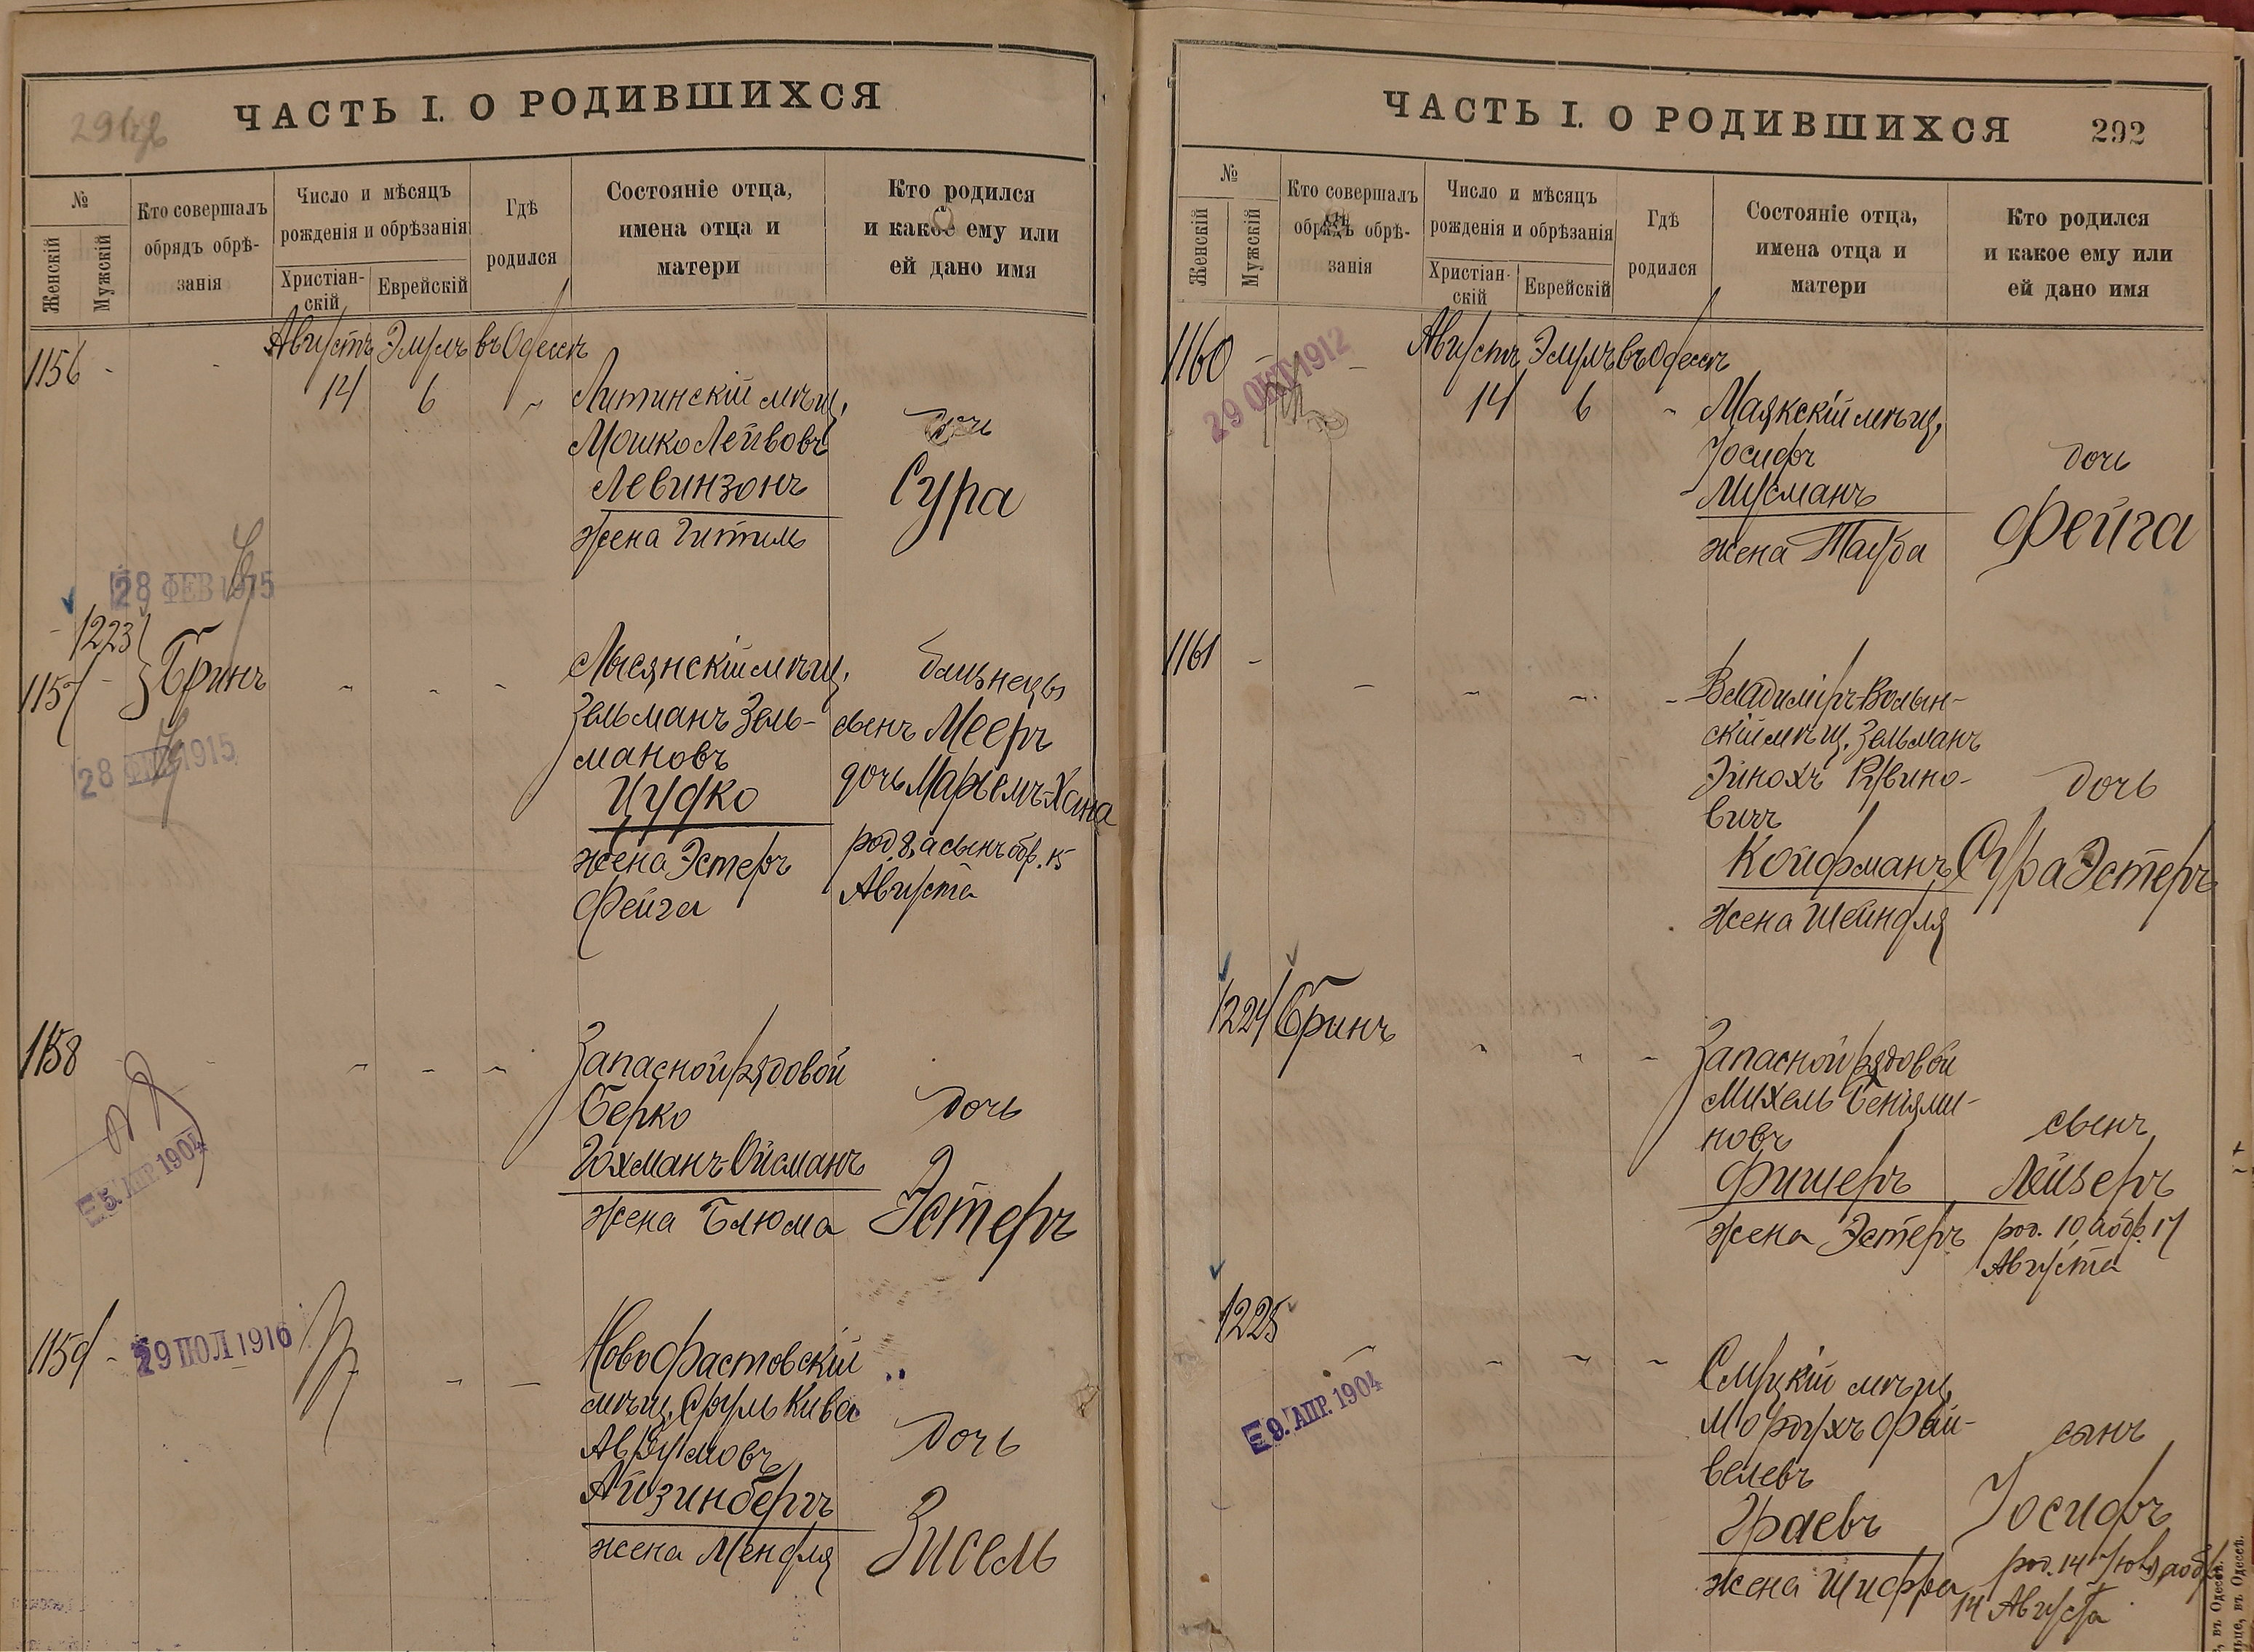 291 об
ЧАСТЬ I. О РОДИВШИХСЯ
№
Женскій
Мужскій
Кто совершалъ
обрядъ обрѣ-
занія
Число и мѣсяцъ
рожденія и обрѣзанія
Христіан-
скій
Еврейскій
Гдѣ
родился
Состояніе отца,
имена отца и
матери
Кто родился
и какое ему или
ей дано имя
Августъ Элулъ въ Одессѣ
1156 - - 14 6 "
Литинскій мѣщ.
Мошко Лейвовъ
Левинзонъ
жена Гитель
дочь
Сура
28 ФЕВ 1915
1223
1157 - Бринъ
28 ФЕВ 1915
Лысянскій мѣщ.
Зельманъ Зель-
мановъ
Цудко
жена Эстеръ
Фейга
близнецы
сынъ Мееръ
дочь Марьемъ-Хана
род 8, а сынъ обр. 15
Августа
1158
5. АПР. 1904
Запасной рядовой
Берко
Гохманъ-Ойсманъ
жена Блюма
дочь
Эстеръ
1159 -
29 ІЮЛ 1916
Новофастовскій
мѣщ. Сруль Кива
Аврумовъ
Айзинбергъ
жена Мендля
дочь
Зисель
ЧАСТЬ I. О РОДИВШИХСЯ 292
№
Женскій
Мужскій
Кто совершалъ
обрядъ обрѣ-
занія
Число и мѣсяцъ
рожденія и обрѣзанія
Христіан-
скій
Еврейскій
Гдѣ
родился
Состояніе отца,
имена отца и
матери
Кто родился
и какое ему или
ей дано имя
Августъ Элулъ въ Одессѣ
1160 - - 14 6 "
29 ОКТ 1912
Маякскій мѣщ.
Іосифъ
Мусманъ
жена Тауба
дочь
Фейга
1161 -
Владиміръ-Волын-
скій мѣщ. Зельманъ
Эйнохъ Рувино-
вичъ
Койфманъ
жена Шейндля
дочь
Сура Эстеръ
1224 Бринъ
Запасной рядовой
Михель Беніями-
новъ
Фишеръ
жена Эстеръ
сынъ
Лейзеръ
род. 10, а обр. 17
Августа
1225
9. АПР. 1904
Слуцкій мѣщ.
Мордухъ Фай-
велевъ
Граевъ
жена Шифра
сынъ
Іосифъ
род. 14 Іюля, а обр.
14 Августа
въ Одессѣ.
въ Одессѣ.